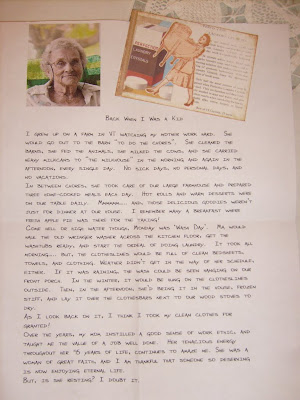 Back When I Was a Kid
I grew up on a farm in VT watching my mother work hard. She
would go out to the barn "to do the chores". She cleaned the
barns, she fed the animals, she milked the cows, and she carried
heavy milkcans to "the milkhouse" in the morning and again in the
afternoon, every single day. No sick days, no personal days, and
no vacations.
In between chores, she took care of our large farmhouse and prepared
three home-cooked meals each day. Hot rolls and warm desserts were
on our table daily. and those delicious goodies weren't
just for dinner at our house. I remember many a breakfast where
fresh apple pie was there for the taking!
Come hell or high water though, Monday was "Wash Day". Ma would
haul the old wringer washer across the kitchen floor, get the
washtubs ready, and start the ordeal of doing laundry. It took all
morning... But, the clotheslines would be full of clean bedsheets,
towels, and clothing. Weather didn't get in the way of her schedule
either. If it was raining, the wash could be seen hanging on our
front porch. In the winter, it would be hung on the clotheslines
outside. Then, in the afternoon, she'd bring it in the house, frozen
stiff, and lay it over the clothesbars next to our wood stoves to
dry.
As I look back on it, I think I took my clean clothes for
granted!
Over the years, my mom instilled a good sense of work ethic, and
taught me the value of a job well done. Her tenacious energy
throughout her years of life, continues to amaze me. She was a
woman of great faith, and I am thankful that someone so deserving
is now enjoying eternal life.
But, is she resting? I doubt it.